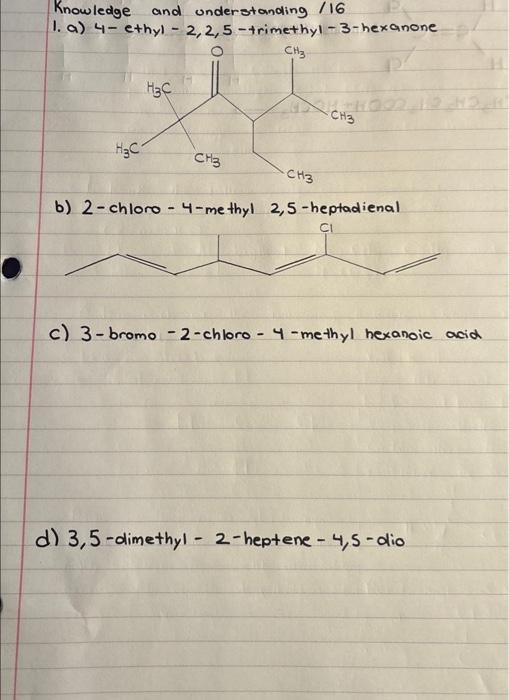 Knowledge and understanding /16
1. a) 4- ethyl - 2,2,5-trimethyl-3-hexanone
O CH3
H3C
CH3
H3C
CH3
CH3
b) 2-chloro-4-methyl 2,5-heptadienal
Cl
c) 3-bromo-2-chloro-4-methyl hexanoic acid
d) 3,5-dimethyl- 2-heptene-4,5-dio